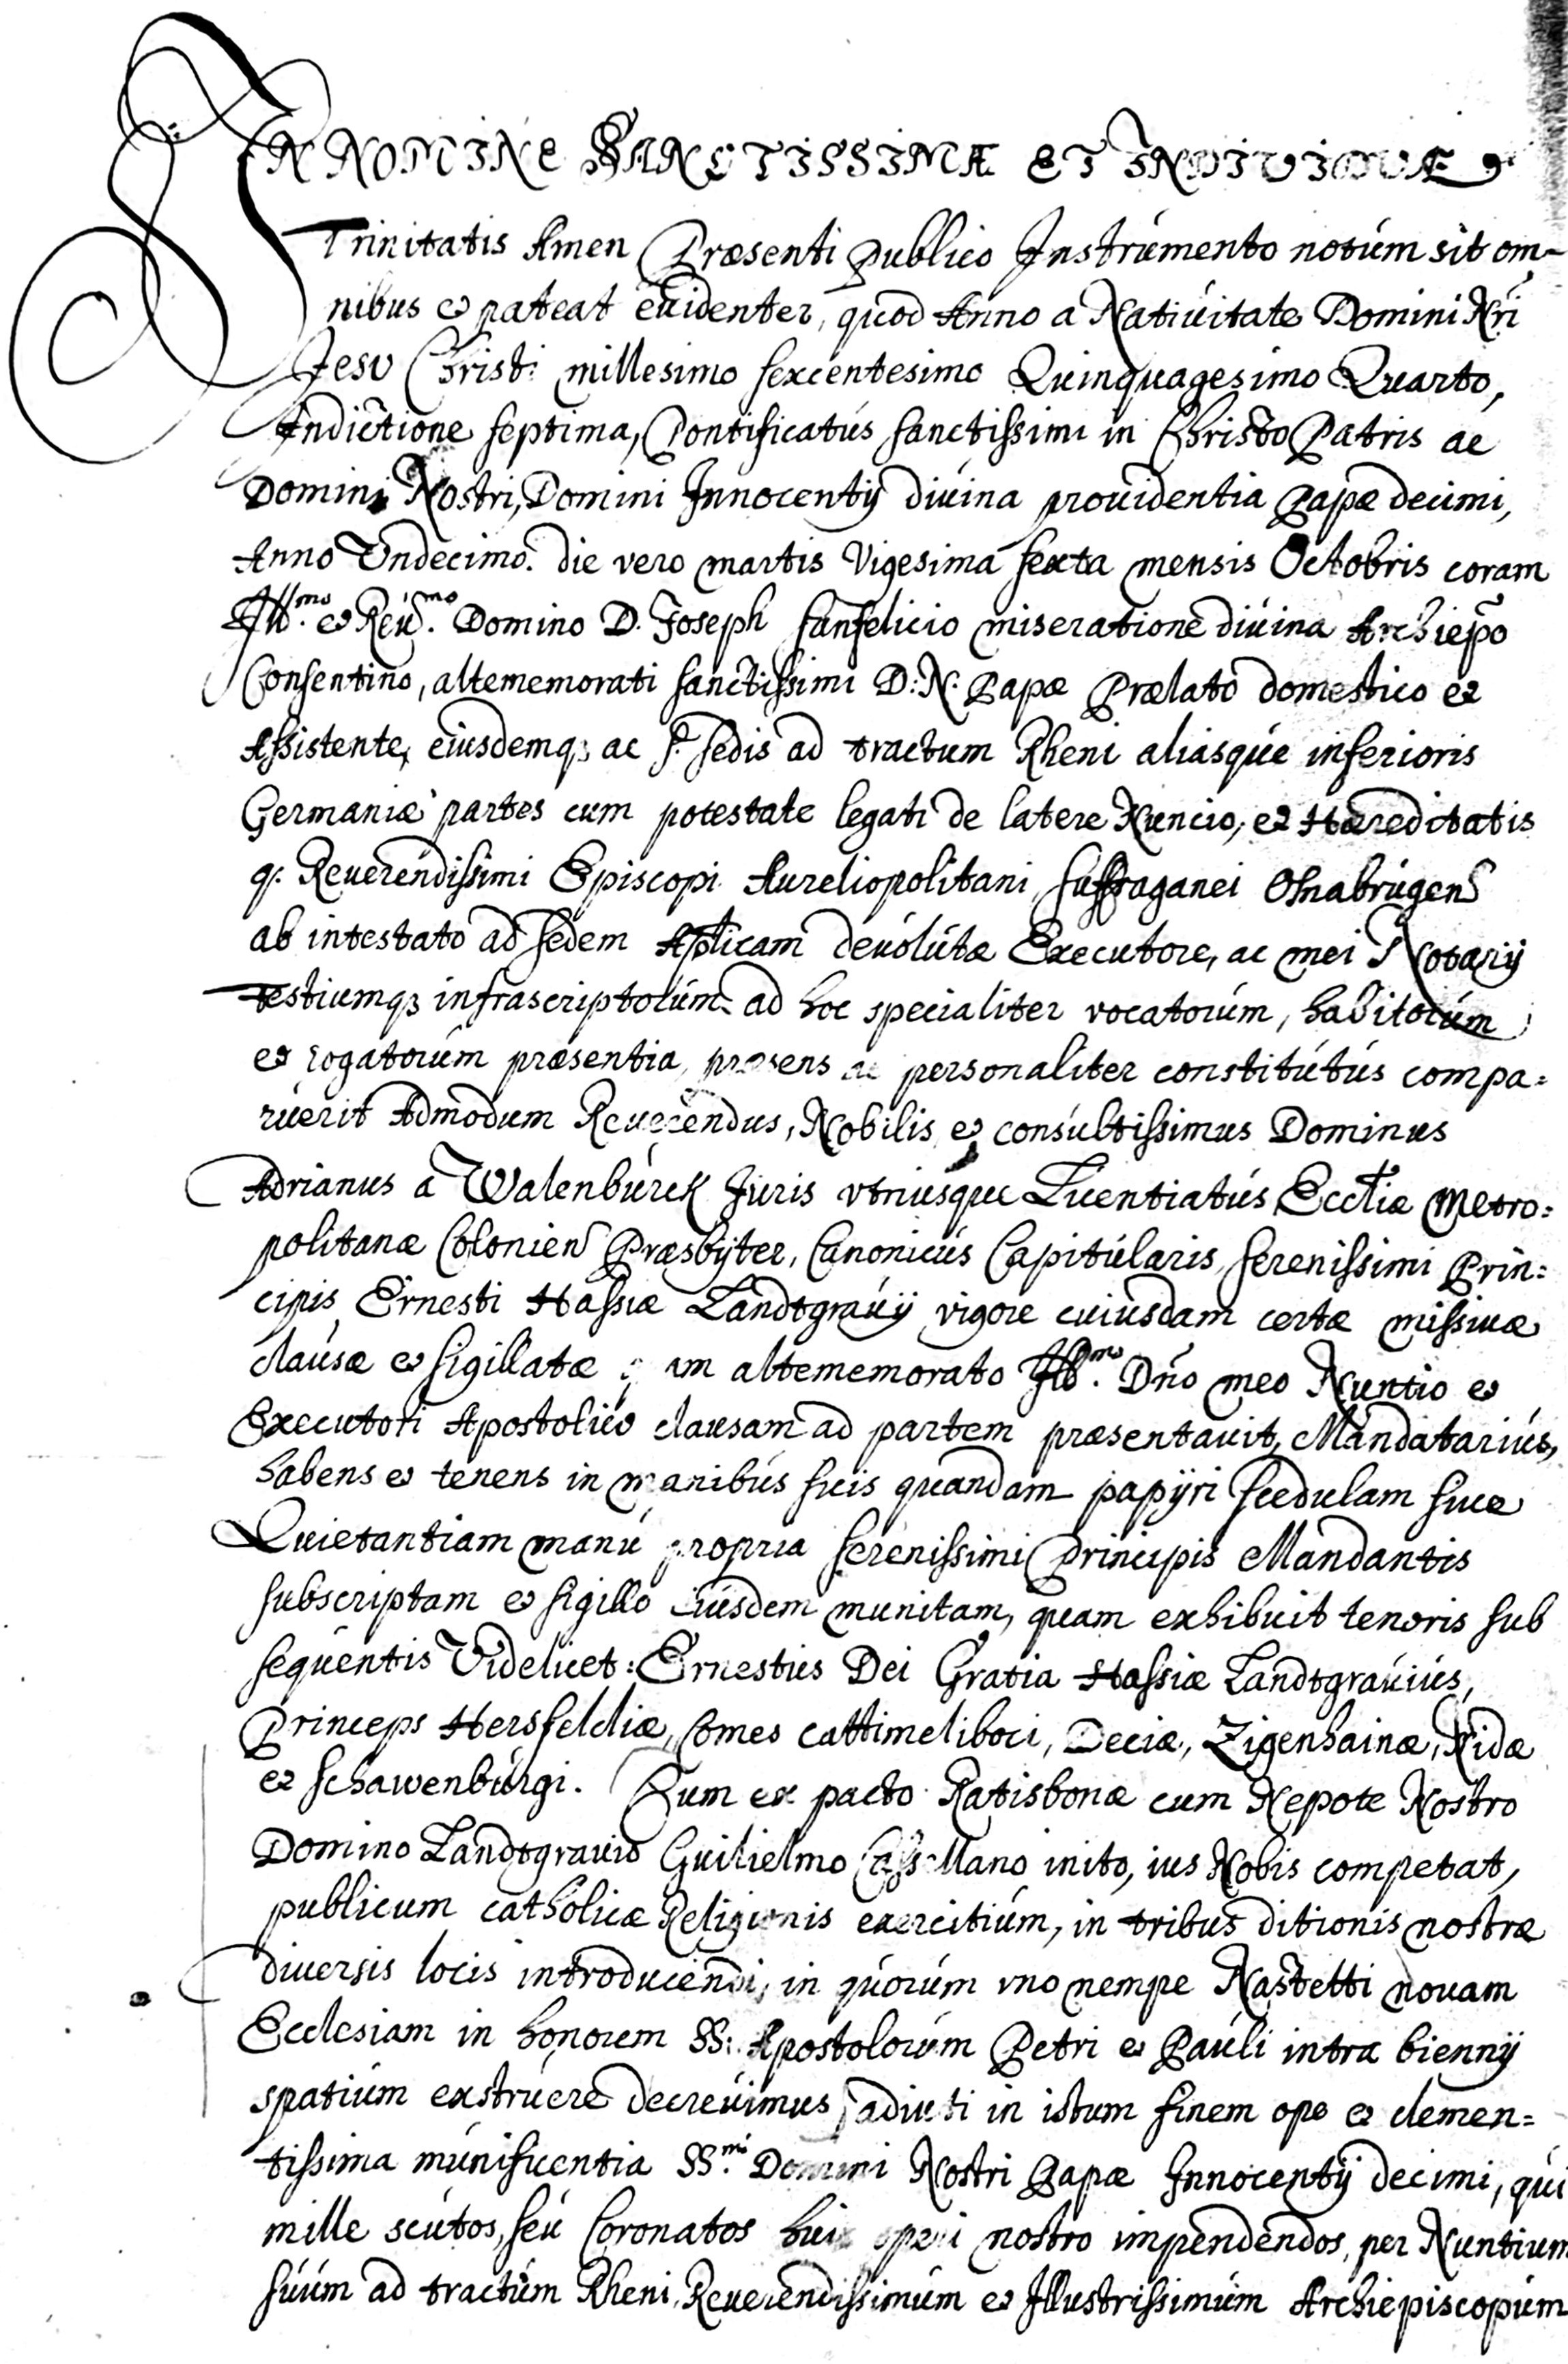 IN NOMINE SANCTISSIMÆ ET INDIVIDUÆ
Trinitatis Amen Præsenti publico Instrúmento notúm sit om-
nibus et pateat evidenter, quod Anno a Nativitate Domini Nri
Jesu Christi millesimo sexcentesimo Quinquagesimo Quarto,
Indictione septima, Pontificatús sanctissimi in Christo Patris ac
Domini Nostri, Domini Innocentij divina providentia Papæ decimi,
Anno Undecimo. die vero martis Vigesima sexta mensis Octobris coram
Illmo. et Revmo. Domino D. Joseph sanfelicio miseratione divina Archiepo
Consentino, altememorati sanctissimi D: N. Papæ Prælato domestico et
Assistente, eiusdemq; ac S. sedis ad tractum Rheni aliasque inferioris
Germaniæ partes cum potestate legati de latere Nuncio, et Hæreditatis
q. Reverendissimi Episcopi Aureliopolitani, suffraganei Osnabrugens
ab intestato ad sedem Aplicam devolútæ Executore, ac mei Notarij
testiumq; infrascriptorúm ad hoc specialiter vocatorúm, habitorúm
et rogatorúm præsentia, præsens ac personaliter constitútús compa=
rúerit Admodum Reverendus, Nobilis et consúltissimus Dominus
Adrianus a Walenbúrck Juris vtriusque Licentiatús Eccliæ Metro=
politanæ Coloniens Præsbyter, Canonicús Capitúlaris, serenissimi Prin=
cipis Ernesti Hassiæ Landtgravij vigore cuiusdam certæ missivæ
clausæ et sigillatæ quam altememorato Illmo. Dño meo Nuntio et
Executori Apostolico clausam ad partem præsentavit, Mandatariús,
habens et tenens in manibús suis quandam papyri scedulam sive
Quietantiam manú propria serenissimi Principis Mandantis
subscriptam et sigillo eiúsdem munitam, quam exhibuit tenoris sub
sequentis Videlicet: Ernestus Dei Gratia Hassiæ Landtgraviús,
Princeps Hersfeldiæ, Comes Cattimeliboci, Deciæ, Zigenhainæ, Nidæ
et Schawenbúrgi. Cum ex pacto Ratisbonæ cum Nepote Nostro
Domino Landtgravio Guilielmo Cassellano inito, ius Nobis competat,
publicum catholicæ Religionis exercitiúm, in tribus ditionis nostræ
diversis locis introducendi, in quorúm vno nempe Nastetti novam
Ecclesiam in honorem SS: Apostolorúm Petri et Paúli intra biennij
spatiúm exstrúere decrevimus, adiuti in istum finem ope et clemen=
tissima múnificentia SS.mi Domini Nostri Papæ Innocentij decimi, qui
mille scútos, seú Coronatos huic operi nostro impendendos, per Nuntium
súúm ad tractúm Rheni, Reverendissimúm et Illustrissimúm Archiepiscopúm